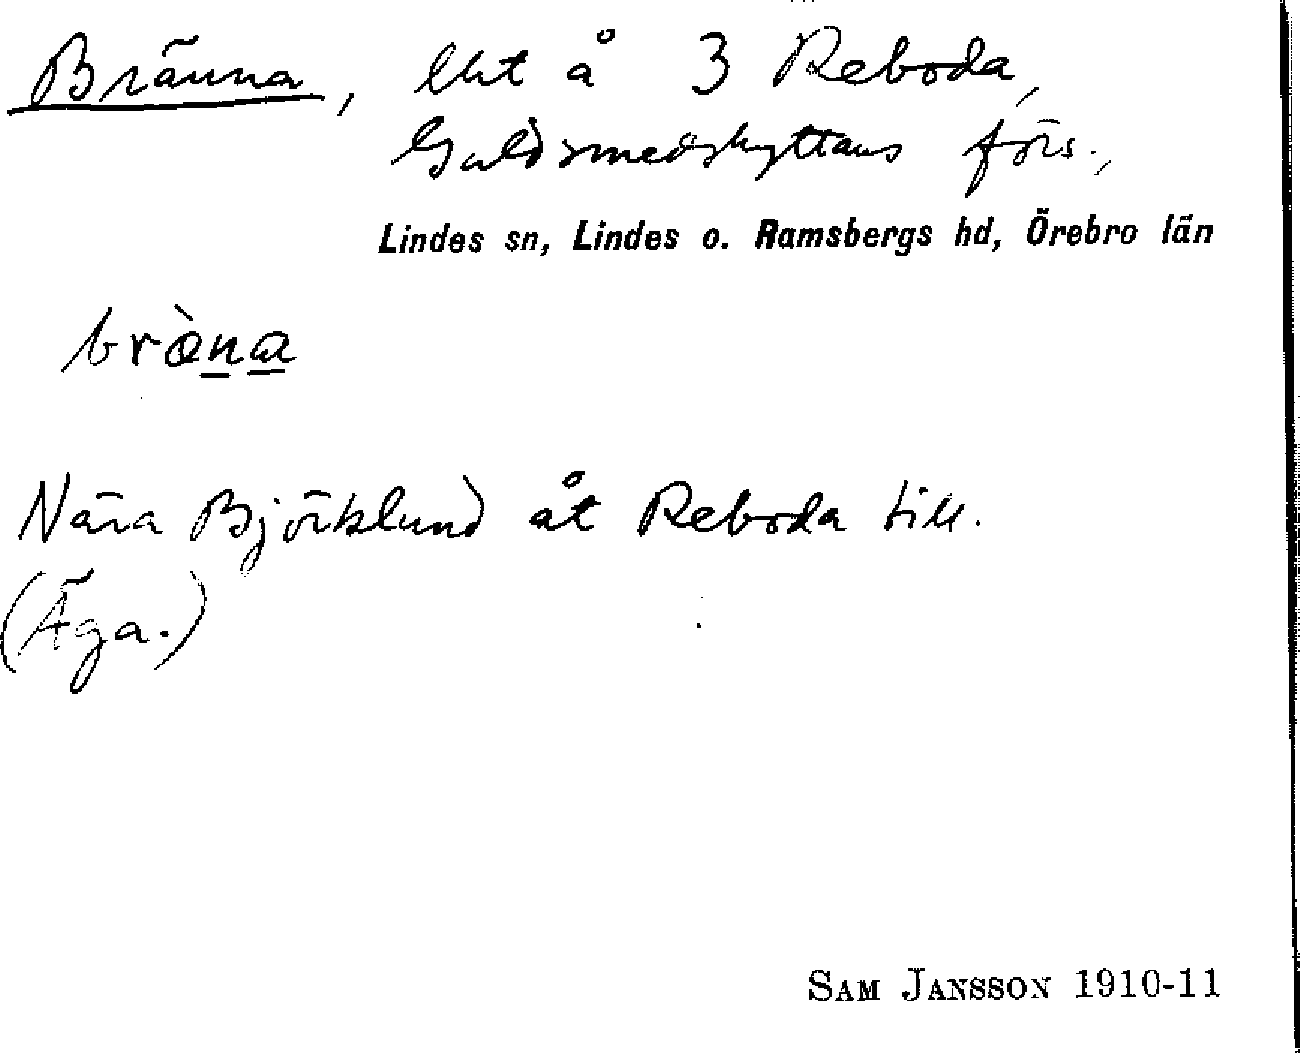 Bränna, lht å 3 Reboda,
Guldsmedshyttans förs.,
Lindes sn, Lindes o. Ramsbergs hd, Örebro län
bræ̀na
Nära Björklund åt Reboda till.
(Äga.)
SAM JANSSON 1910-11